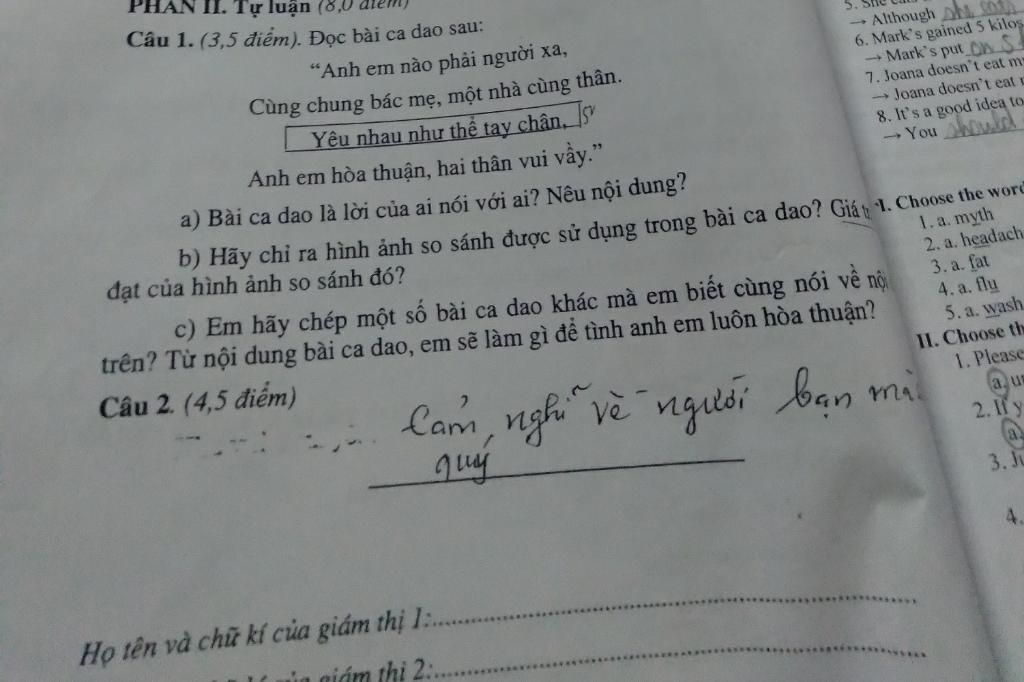 PHẦN II. Tự luận (8,0 điểm)
Câu 1. (3,5 điểm). Đọc bài ca dao sau:
“Anh em nào phải người xa,
Cùng chung bác mẹ, một nhà cùng thân.
Yêu nhau như thể tay chân,
Anh em hòa thuận, hai thân vui vầy.”
a) Bài ca dao là lời của ai nói với ai? Nêu nội dung?
b) Hãy chỉ ra hình ảnh so sánh được sử dụng trong bài ca dao? Giá
đạt của hình ảnh so sánh đó?
c) Em hãy chép một số bài ca dao khác mà em biết cùng nói về
trên? Từ nội dung bài ca dao, em sẽ làm gì để tình anh em luôn hòa thuận?
Câu 2. (4,5 điểm)
Cảm nghĩ về người bạn
quý
Họ tên và chữ kí của giám thị 1:
giám thị 2:
→ Although she eats
6. Mark's gained 5 kilos
→ Mark's put on 5
7. Joana doesn't eat
→ Joana doesn't eat
8. It's a good idea to
→ You should
I. Choose the
1. a. myth
2. a. headach
3. a. fat
4. a. flu
5. a. wash
II. Choose
1. Please
a.
2. If y
a.
3.
4.